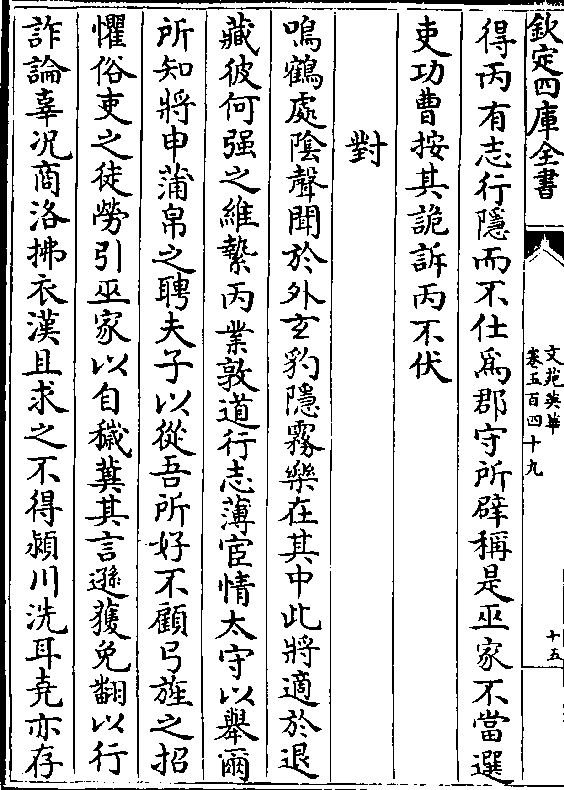 欽定四庫全書
文苑英華
卷五百四十九
十五
得丙有志行隱而不仕為郡守所辟稱是巫家不當選
吏功曹按其詭訴丙不伏
對
鳴鶴處陰聲聞於外玄豹隱霧樂在其中此將適於退
藏彼何强之維縶丙業敦道行志薄宦情太守以舉爾
所知將申蒲帛之聘夫子以從吾所好不顧弓旌之招
懼俗吏之徒勞引巫家以自穢冀其言遜獲免翻以行
詐論辜况商洛拂衣漢且求之不得潁川洗耳堯亦存